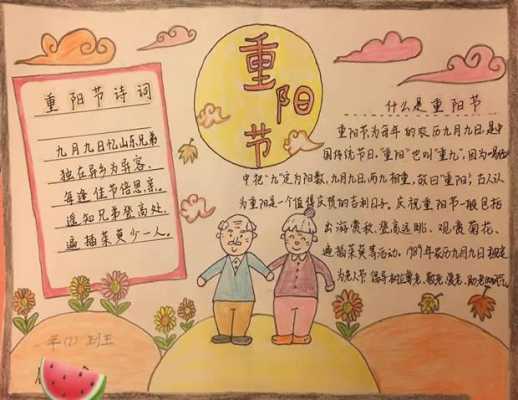 重阳节
重阳节诗词
九月九日忆山东兄弟
独在异乡为异客，
每逢佳节倍思亲。
遥知兄弟登高处，
遍插茱萸少一人。
什么是重阳节
重阳节为每年的农历九月九日，是中
国传统节日。"重阳"也叫"重九"，因为《易经》
中把"九"定为阳数，九月九日，两九相重，故曰"重阳"；古人认
为重阳是一个值得庆贺的吉利日子。庆祝重阳节一般包括
出游赏秋、登高远眺、观赏菊花、
遍插茱萸等活动，1989年农历九月九日被定
为老人节，倡导树立尊老、敬老、爱老、助老的
年(1)班王